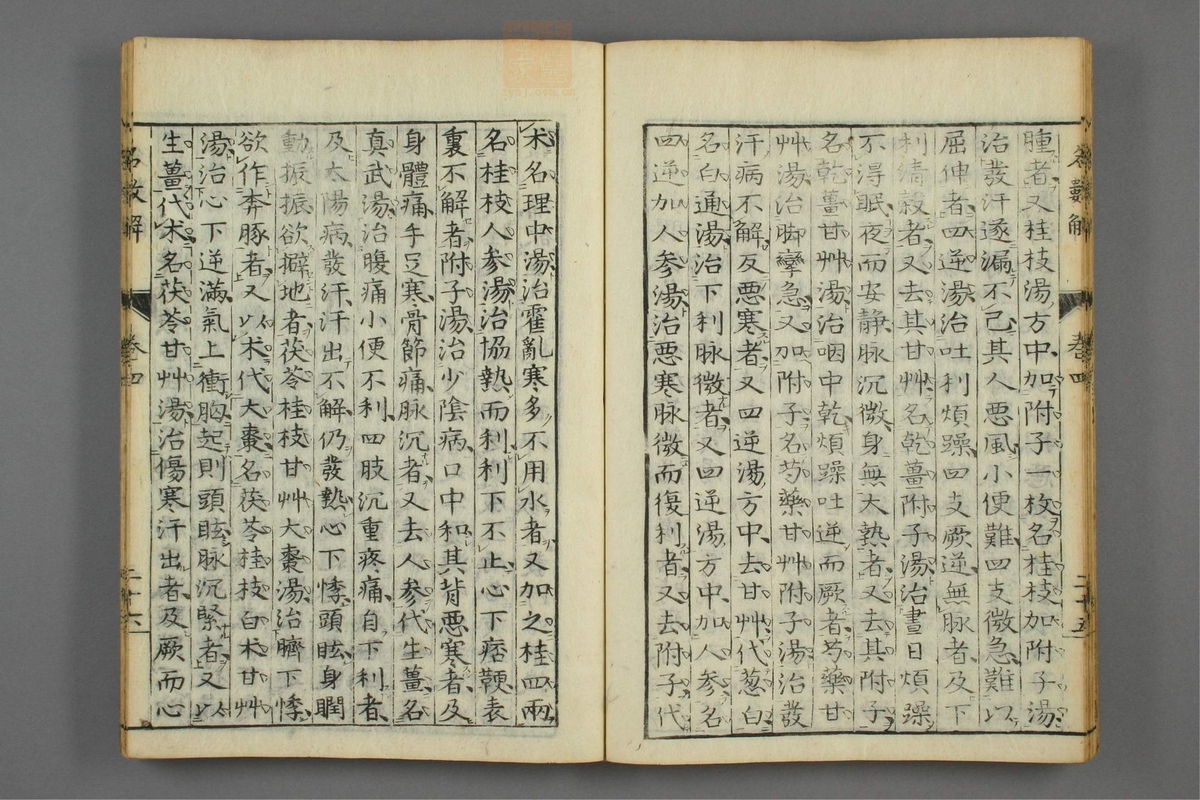 腫者又桂枝湯方中加附子一枚名桂枝加附子湯
治發汗遂漏不已其人惡風小便難四支微急難以
屈伸者四逆湯治吐利煩躁四支厥逆無脉者及下
利清穀者又去其甘艸名乾薑附子湯治晝日煩躁
不得眠夜而安静脉沉微身無大熱者又去其附子
名乾薑甘艸湯治咽中乾煩躁吐逆而厥者芍藥甘
艸湯治脚攣急又加附子名芍藥甘艸附子湯治發
汗病不解反惡寒者又四逆湯方中去甘艸代葱白
名白通湯治下利脉微者又四逆湯方中加人参名
四逆加人参湯治惡寒脉微而復利者又去附子代
术名理中湯治霍亂寒多不用水者又加之桂四兩
名桂枝人参湯治協熱而利利下不止心下痞鞕表
裏不解者附子湯治少陰病口中和其背惡寒者及
身體痛手足寒骨節痛脉沉者又去人参代生薑名
真武湯治腹痛小便不利四肢沉重疼痛自下利者
及太陽病發汗汗出不解仍發熱心下悸頭眩身瞤
動振振欲擗地者茯苓桂枝甘艸大棗湯治臍下悸
欲作奔豚者又以术代大棗名茯苓桂枝白术甘艸
湯治心下逆滿氣上衝胸起則頭眩脉沉緊者又以
生薑代术名茯苓甘艸湯治傷寒汗出者及厥而心
卷四
二十五
卷四
二十六